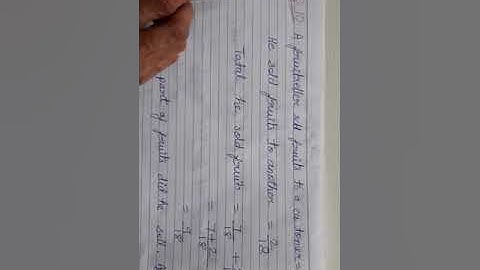 10 A fruitseller sell fruits to a customer =
He sold fruits to another = 2/18
Total he sold fruits = 7/18 +
= 7+2/18
= 9/18
part of fruits did he sell.